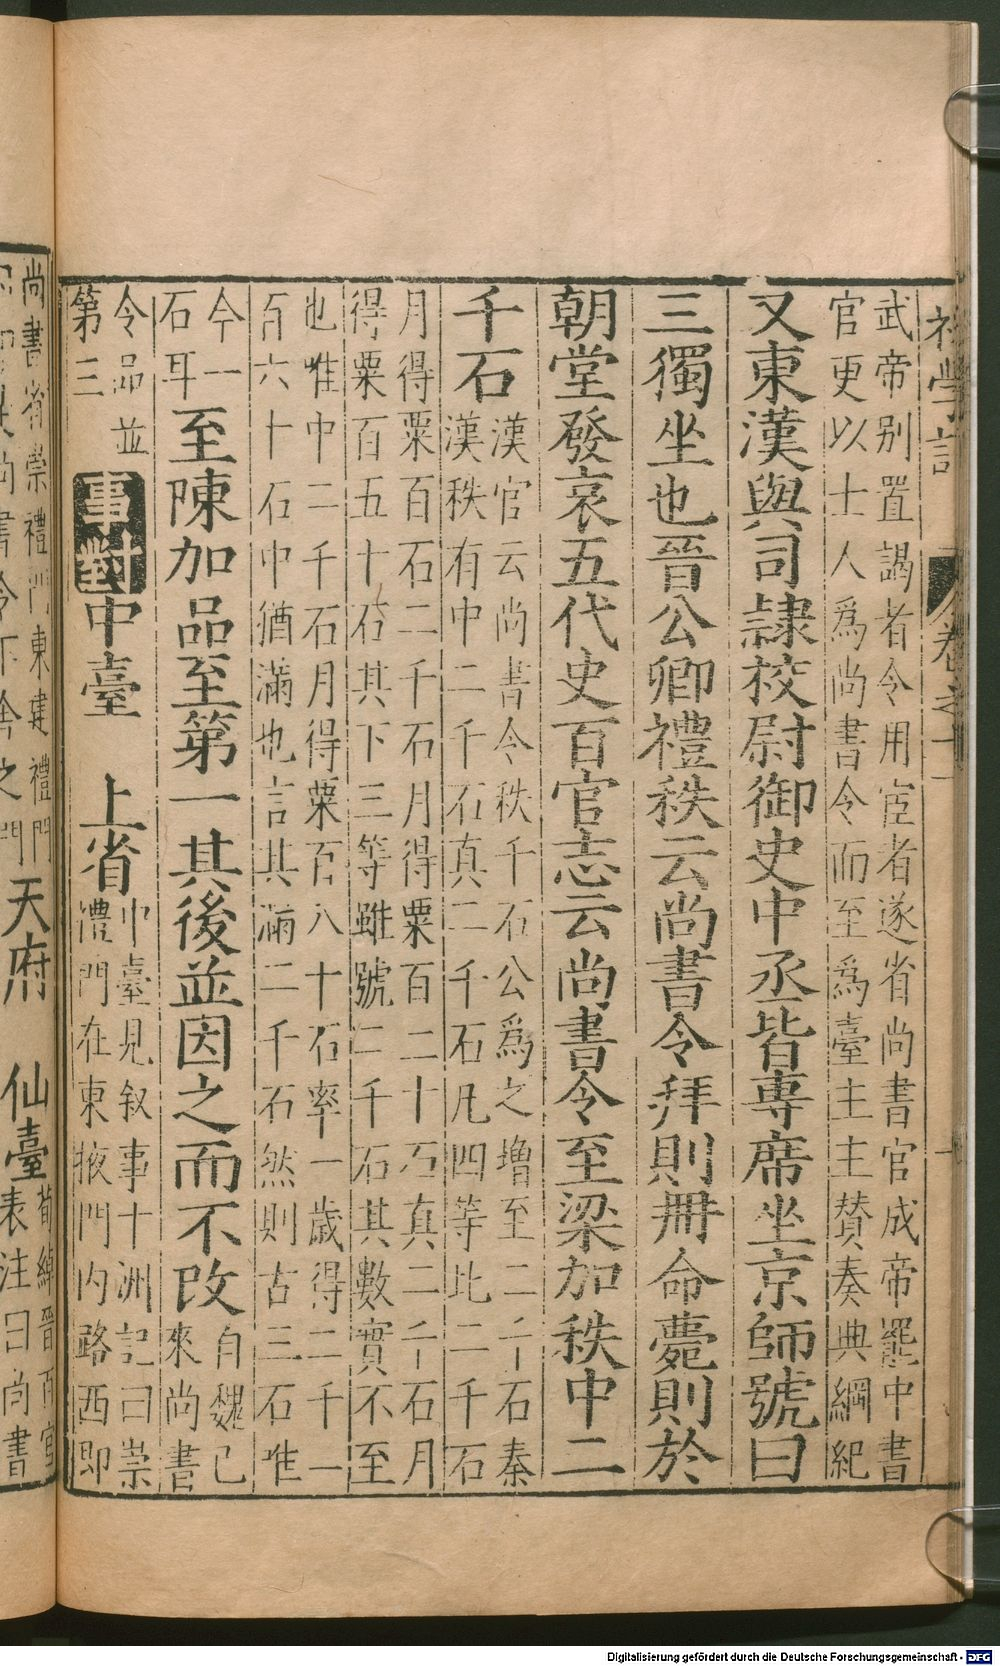 初學記
卷之十一
武帝别置謁者令用宦者遂省尚書官成帝罷中書
官更以士人爲尚書令而至爲臺主主賛奏典綱紀
又東漢與司隷校尉御史中丞皆專席坐京師號曰
三獨坐也晉公卿禮秩云尚書令拜則冊命薨則於
朝堂發哀五代史百官志云尚書令至梁加秩中二
千石漢官云尚書令秩千石公爲之增至二千石秦
漢秩有中二千石真二千石凡四等比二千石
月得粟百石二千石月得粟百二十石真二千石月
得粟百五十石其下三等雖號二千石其數實不至
也唯中二千石月得粟百八十石率一歲得二千一
百六十石中猶滿也言其滿二千石然則古三石唯
今一
石耳至陳加品至第一其後並因之而不改自魏已
來尚書
令品並
第三事對中臺 上省中臺見叙事十洲記曰崇
禮門在東掖門内路西即
尚書省崇禮門東建禮門
天府 仙臺荀綽晉百官
表注曰尚書
Digitalisierung gefördert durch die Deutsche Forschungsgemeinschaft - DFG